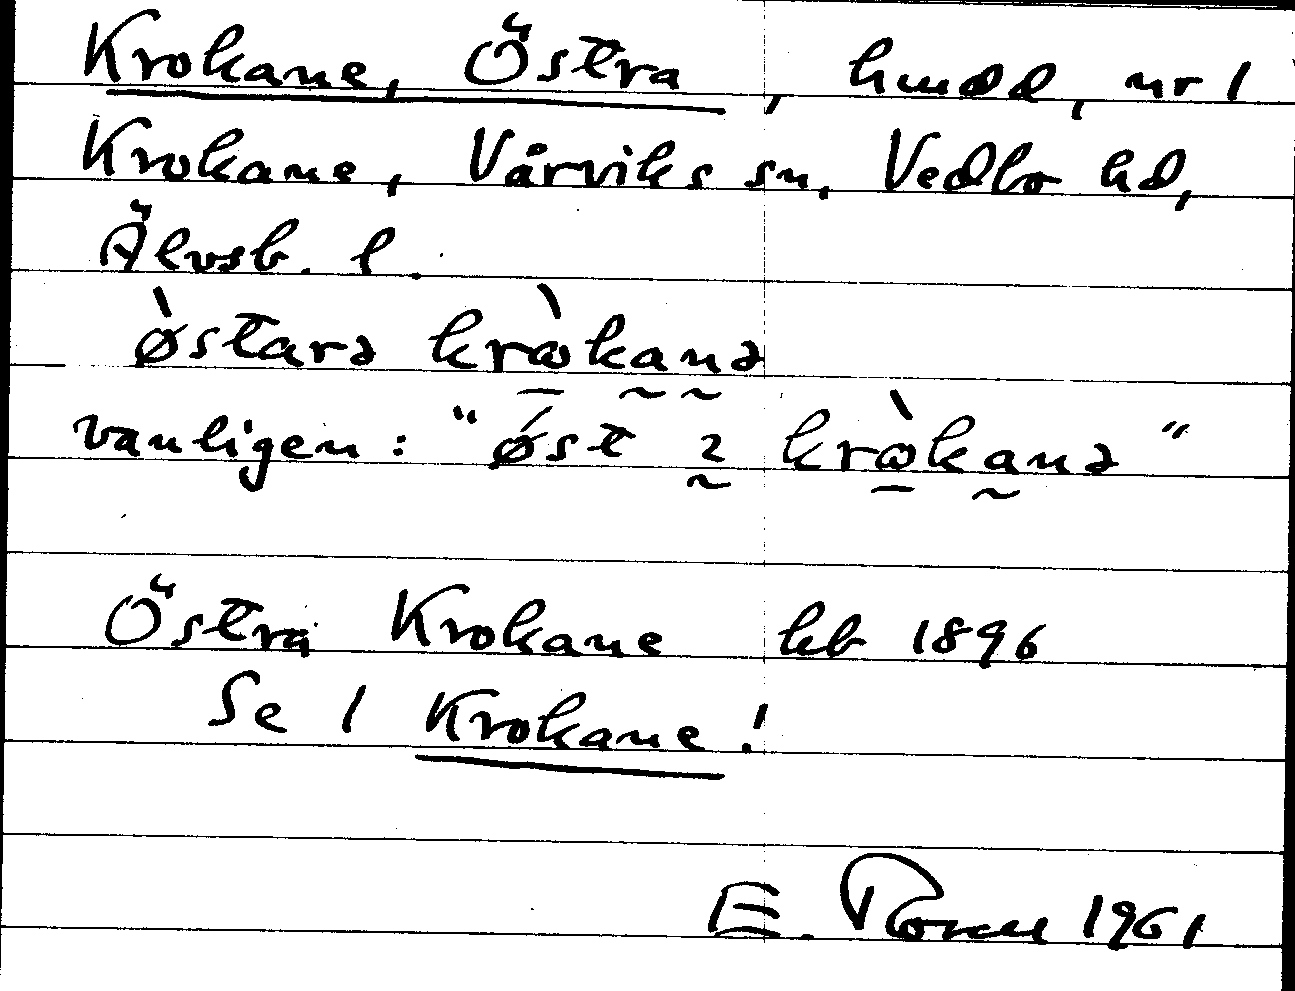 Krokane, Östra, hmdd, nr 1
Krokane, Vårviks sn, Vedbo hd,
Älvsb. l.
ø̀starə krὼkanə
vanligen: "øst 2 krὼkanə"
Östra Krokane kb 1896
Se 1 Krokane!
E. 1961